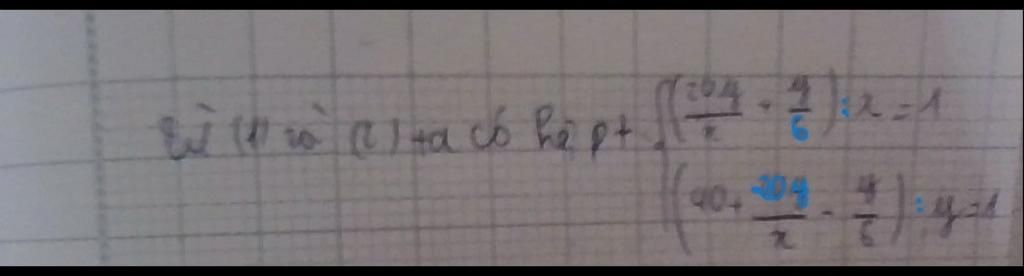 Từ (1) và (2) ta có hệ pt { (20y/x - y/6) : x = 1
(40 + 20y/x - y/6) : y = 1